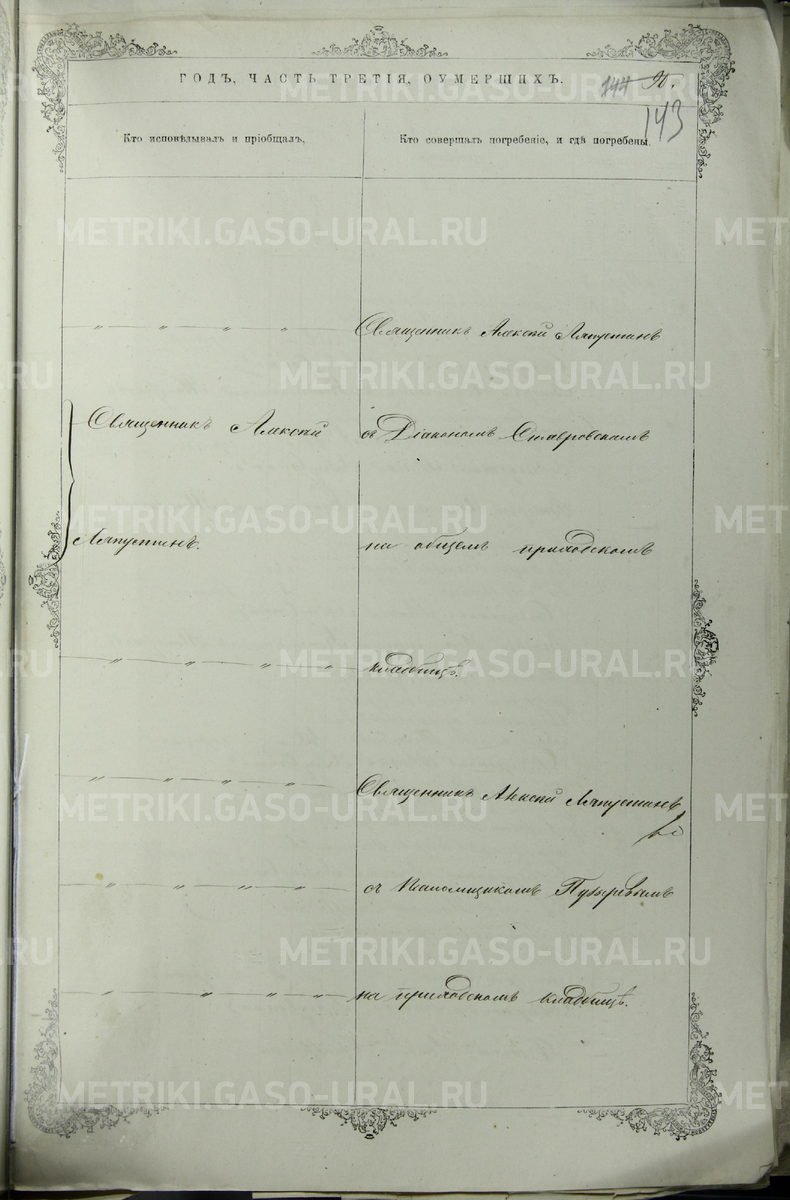 ГОДЪ, ЧАСТЬ ТРЕТІЯ, О УМЕРШИХЪ.
144
143
Кто исповѣдывалъ и пріобщалъ.
Кто совершалъ погребеніе, и гдѣ погребены.
Священникъ Алексій Ляпустинъ
Священникъ Алексій
съ Діакономъ Ставровскимъ
Ляпустинъ.
на общемъ приходскомъ
кладбищѣ.
Священникъ Алексій Ляпустинъ
съ Псаломщикомъ
на приходскомъ кладбищѣ.
METRIKI.GASO-URAL.RU